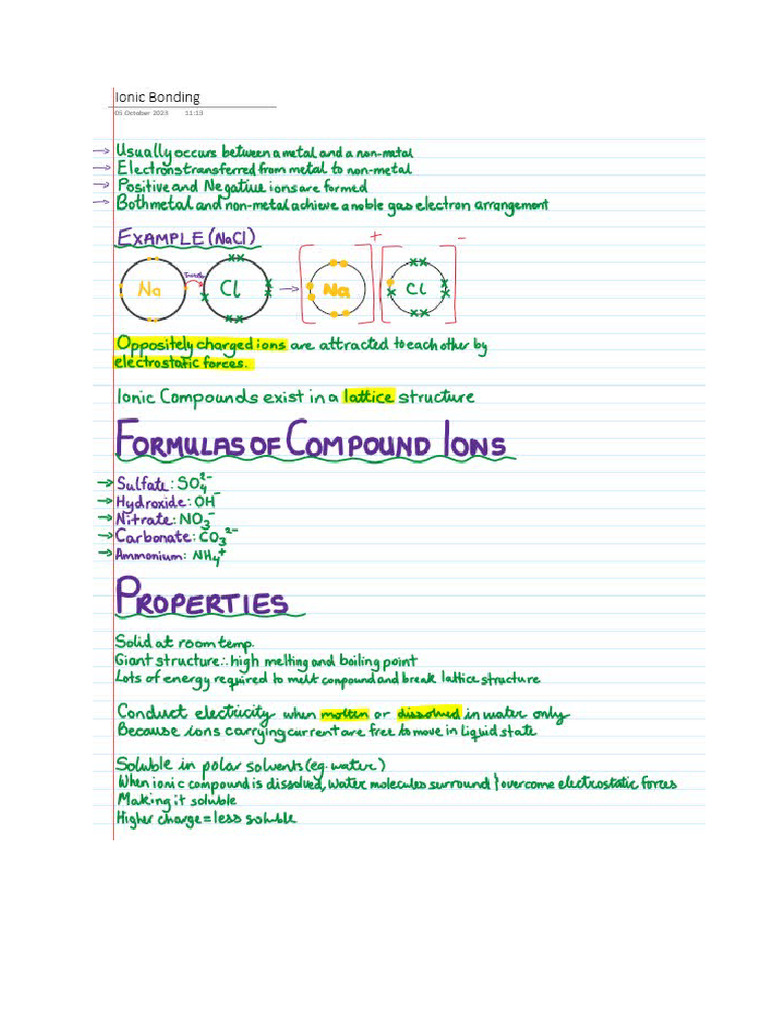 Ionic Bonding
05 October 2023 11:13
→ Usually occurs between a metal and a non-metal
→ Electrons transferred from metal to non-metal
→ Positive and Negative ions are formed
→ Both metal and non-metal achieve a noble gas electron arrangement
EXAMPLE (NaCl)
Na Cl → [Na]+ [Cl]-
Oppositely charged ions are attracted to each other by
electrostatic forces.
Ionic Compounds exist in a lattice structure
FORMULAS OF COMPOUND IONS
→ Sulfate: SO₄²⁻
→ Hydroxide: OH⁻
→ Nitrate: NO₃⁻
→ Carbonate: CO₃²⁻
→ Ammonium: NH₄⁺
PROPERTIES
Solid at room temp.
Giant structure ∴ high melting and boiling point
Lots of energy required to melt compound and break lattice structure
Conduct electricity when molten or dissolved in water only
Because ions carrying current are free to move in liquid state
Soluble in polar solvents (eg. water)
When ionic compound is dissolved, water molecules surround & overcome electrostatic forces
Making it soluble
Higher charge = less soluble